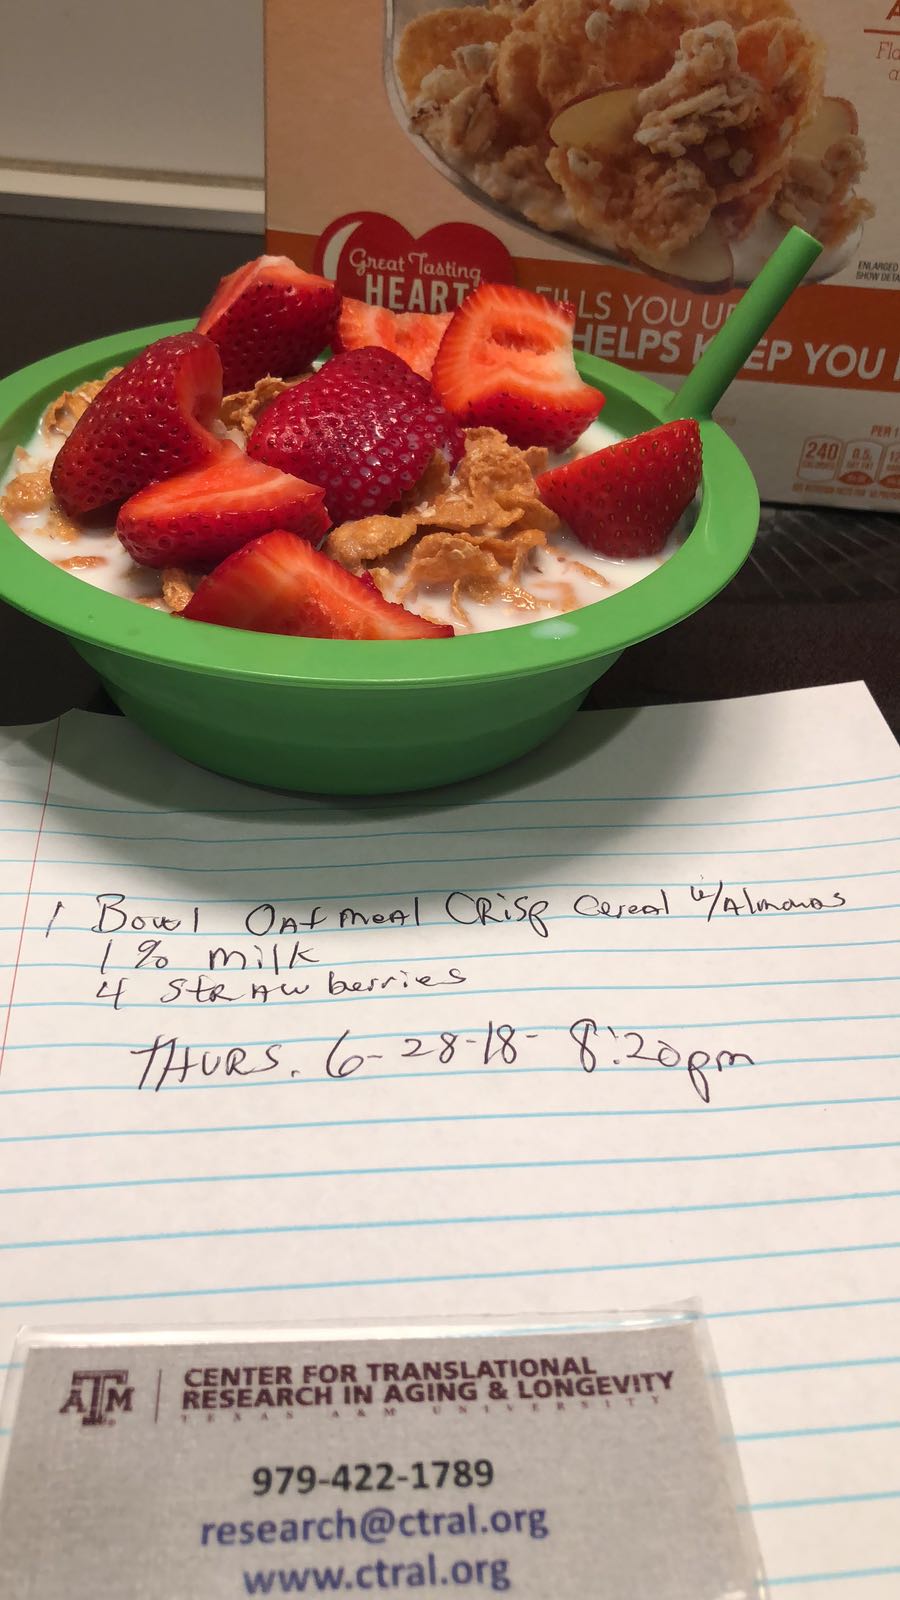 Great Tasting
HEART
FILLS YOU UP
HELPS KEEP YOU
ENLARGED
PER 1
240
CALORIES
0.5
SAT FAT
1 Bowl Oatmeal CRisp Cereal w/Almonds
1% milk
4 StRAwberries
THURS. 6-28-18- 8:20pm
ATM
CENTER FOR TRANSLATIONAL
RESEARCH IN AGING & LONGEVITY
TEXAS A&M UNIVERSITY
979-422-1789
research@ctral.org
www.ctral.org